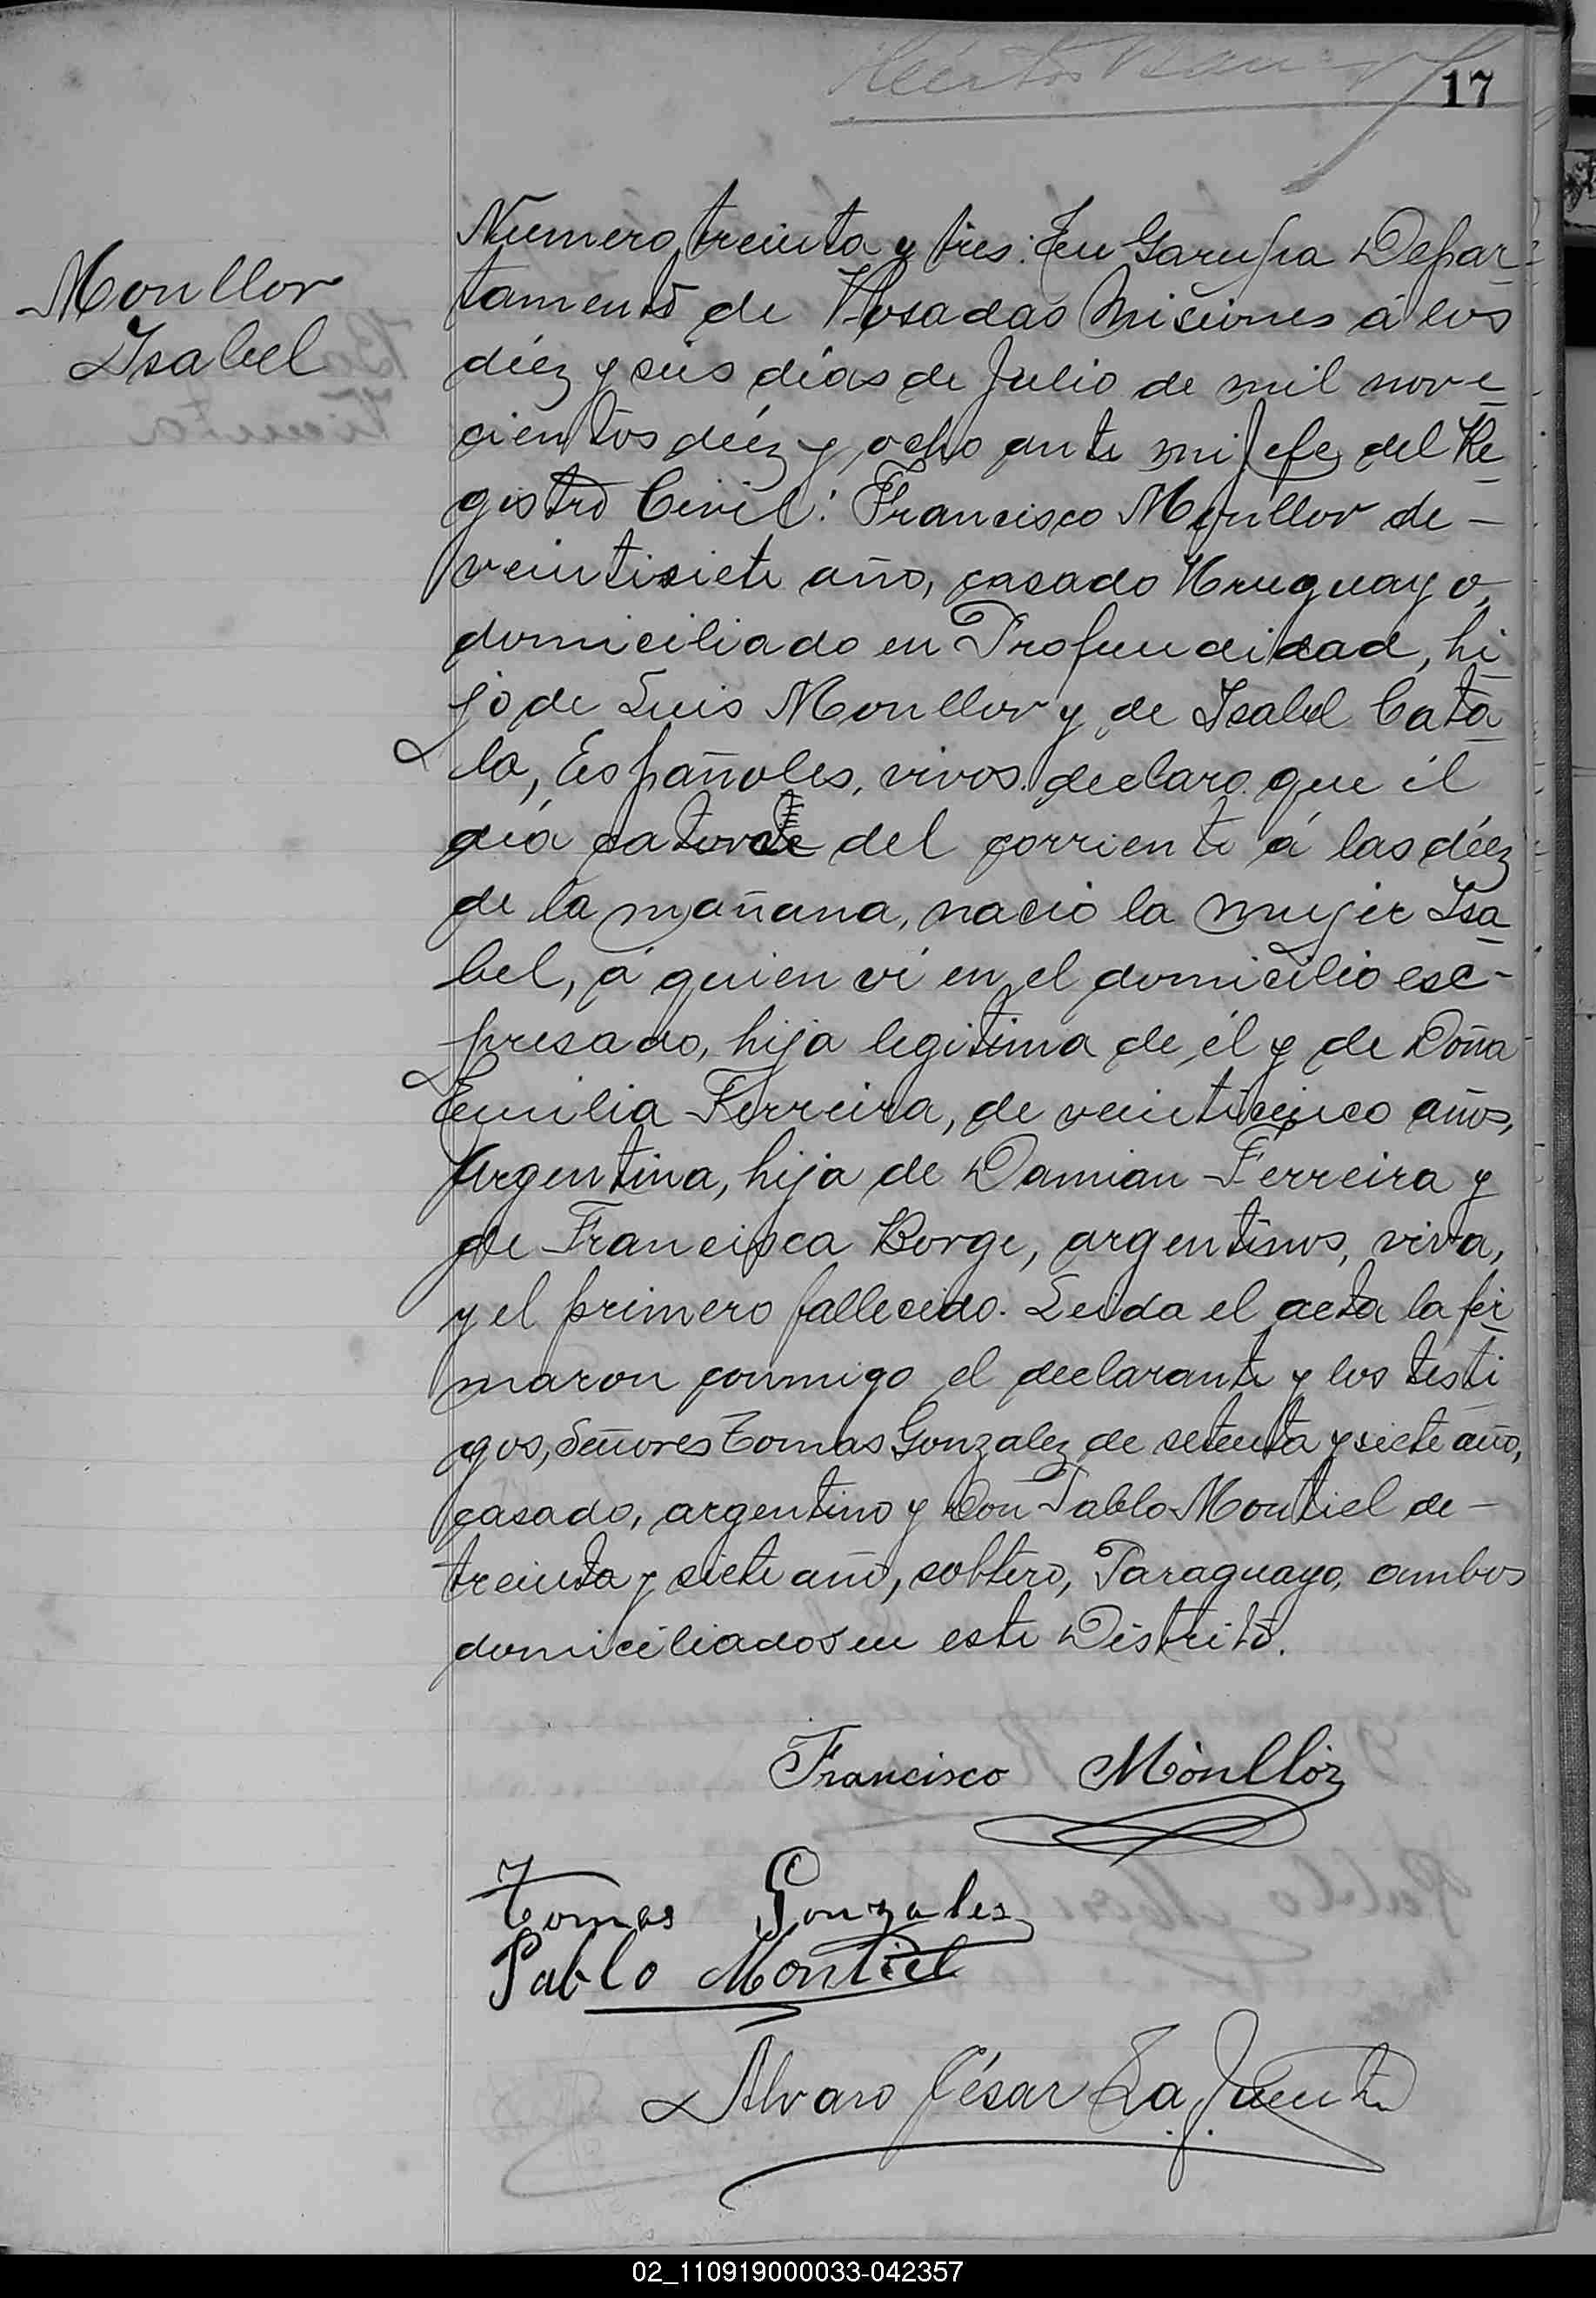 17
Monllor
Isabel
Numero treinta y tres: En Garupa Depar-
tamento de Posadas Misiones á los
diéz y seis días de Julio de mil nove
cientos diéz y ocho ante mi Jefe del Re
gistro Civil: Francisco Monllor de -
veintisiete año, casado Uruguayo,
domiciliado en Profundidad, hi
jo de Luis Monllor y de Isabel Catá
la, Españoles, vivos. declaro que él
día catorce del corriente á las diéz
de la mañana, nació la mujer Isa
bel, á quien ví en el domicilio esc-
presado, hija legitima de él y de Doña
Emilia Ferreira, de veinticinco años,
Argentina, hija de Damian Ferreira y
de Francisca Borge, argentinos, viva,
y el primero fallecido. Leida el acta la fir
maron conmigo el declarante y los testi
gos, Señores Tomas Gonzalez de setenta y siete año,
casado, argentino y Don Pablo Montiel de -
treinta y siete año, soltero, Paraguayo, ambos
domiciliados en este Distrito.
Francisco Monllor
Tomas Gonzales
Pablo Montiel
Alvaro César La Fuente
02_110919000033-042357